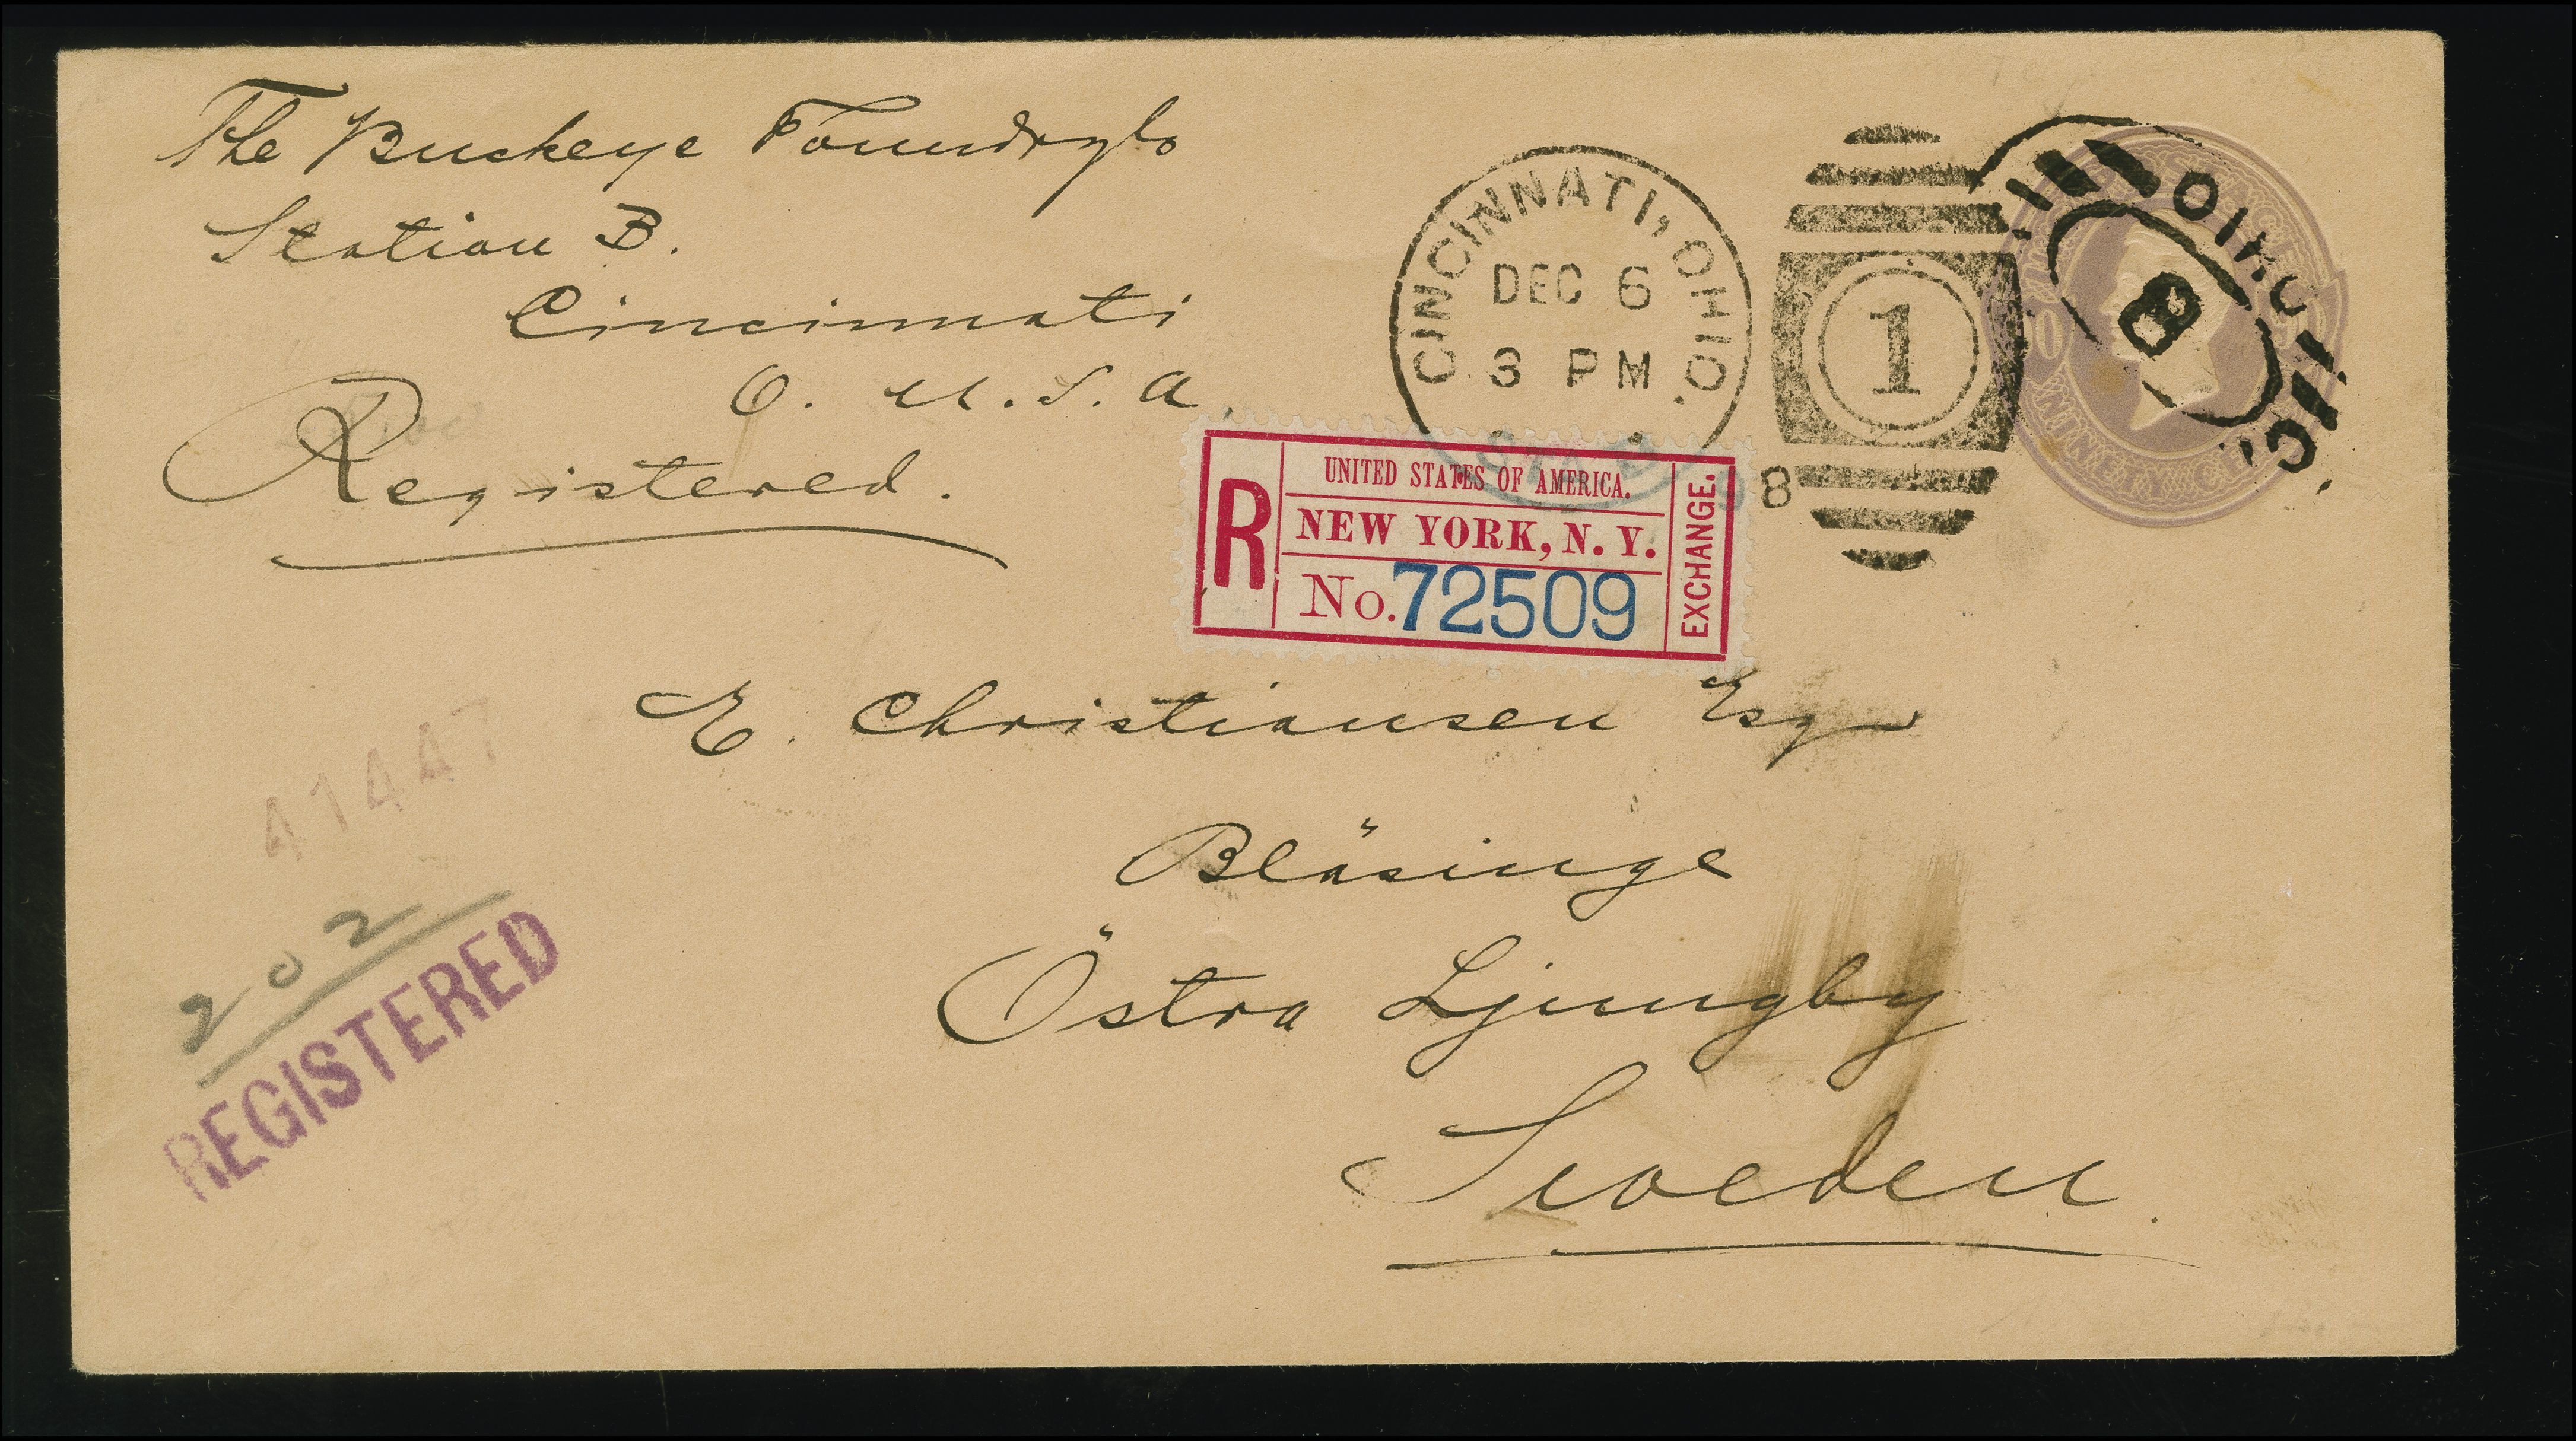 The Buckeye Foundry Co
Station B.
Cincinnati
O. U.S.A.
Registered.
CINCINNATI, OHIO.
DEC 6
3 PM
1
8
OHIO
8
NINETY CE
R
UNITED STATES OF AMERICA.
NEW YORK, N. Y.
No. 72509
EXCHANGE.
E. Christiansen Esq
Bläsinge
Östra Ljungby
Sweden.
41447
202
REGISTERED